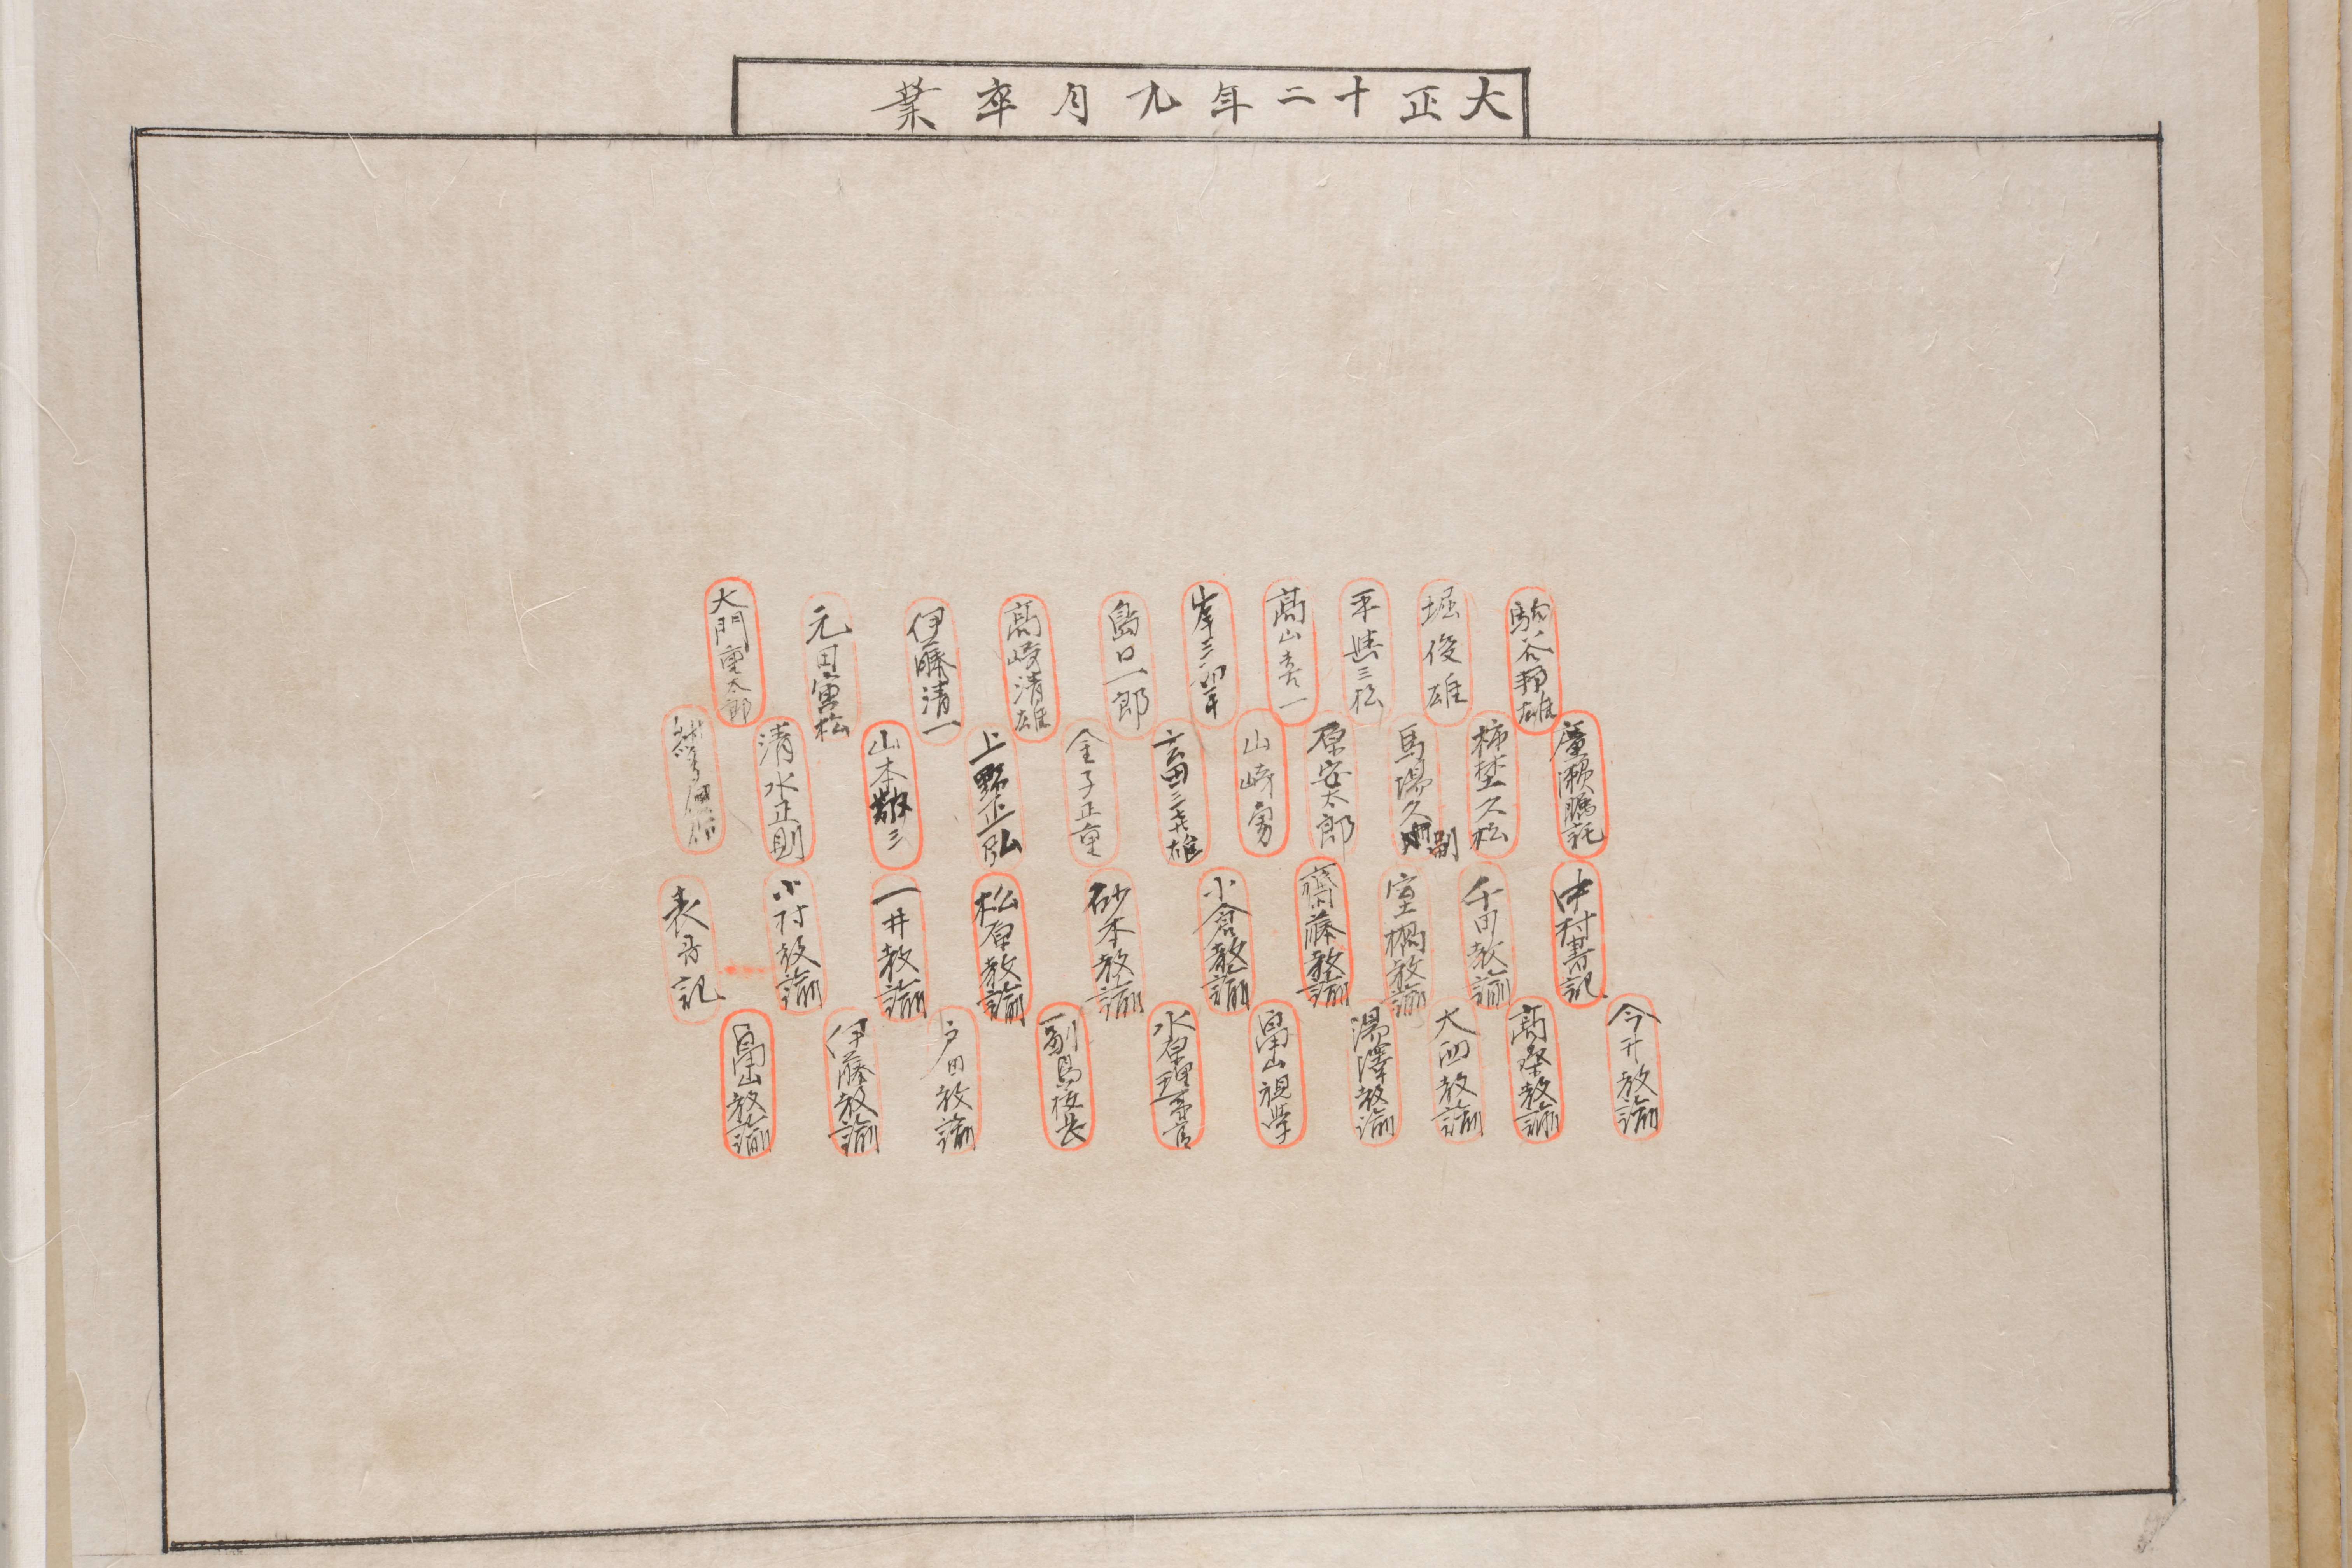 大正十二年九月卒業
駒谷邦雄
堀俊雄
平無三松
髙山喜一
岸三卯平
島口一郎
髙﨑清雄
伊藤清一
元田寅松
大門重太郎
廣瀬嘱託
柿埜久松
馬場久
副
原安太郎
山﨑勇
金子正重
上野正弘
山本敬三
清水正則
中村書記
千田教諭
室橋教諭
齋藤教諭
小倉教諭
砂本教諭
松原教諭
一井教諭
小村教諭
表書記
今井教諭
髙桑教諭
大四教諭
湯澤教諭
畠山視学
水原理事官
副島校長
戸田教諭
伊藤教諭
畠山教諭